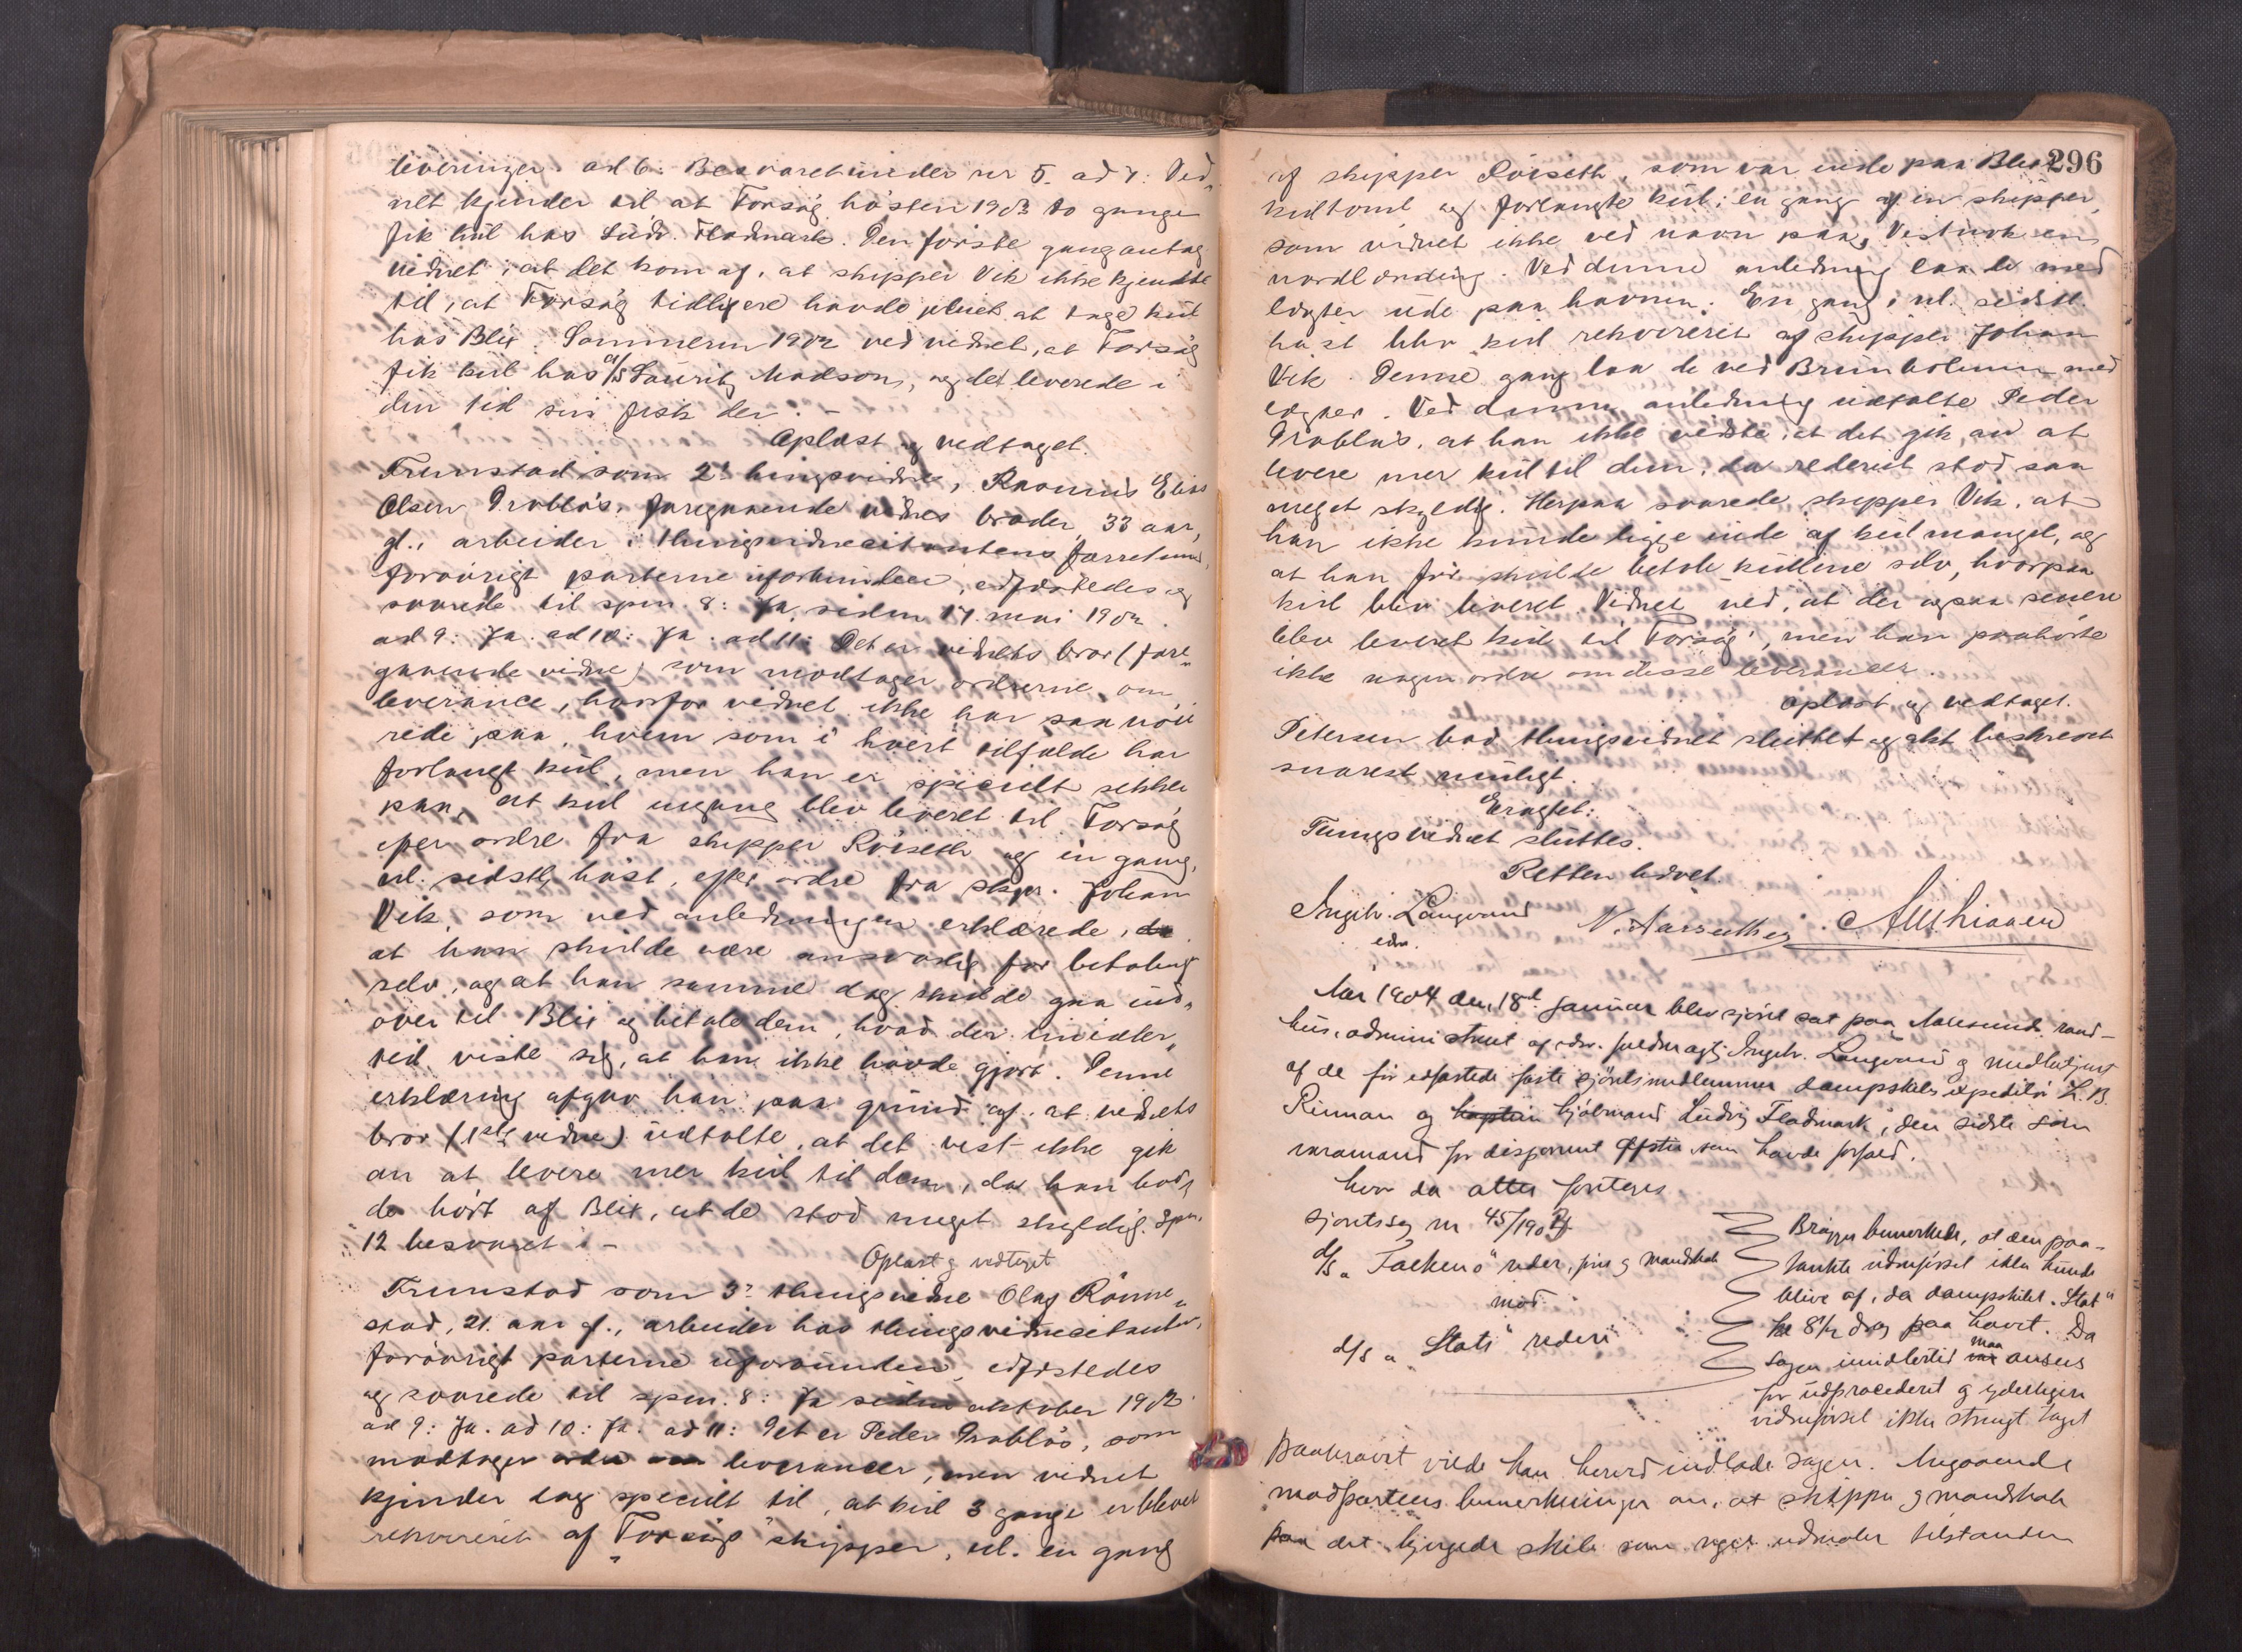 leveringer. ad 6: Besvaret under nr 5. ad 7: Vid-
net kjender til at Forsøg høsten 1903 to gange
fik kul hos Ludv. Fladmark. Den første gang antog
vidnet, at det kom af, at skipper Vik ikke kjendte
til, at Forsøg tidligere havde pleiet at tage kul
hos Blix. Sommeren 1902 ved vidnet, at Forsøg
fik kul hos A/S Lauritz Madsen, og det leverede i
den tid sin fisk der. –
Oplæst og vedtaget.
Fremstod som 2det tingsvidne, Rasmus Elias
Olsen Drabløs, foregaaende vidnes broder, 33 aar
gl., arbeider i thingsvidnecitantens forretning,
forøvrigt parterne uforbunden, edfæstedes og
svarede til spm. 8: Ja, siden 17. mai 1902.
ad 9: Ja. ad 10: Ja. ad 11: Det er vidnets bror (fore-
gaaende vidne) som modtager ordrerne om
leverance, hvorfor vidnet ikke har saa nøie
rede paa, hvem som i hvert tilfælde har
forlangt kul, men han er specielt sikker
paa, at kul engang blev leveret til Forsøg
efter ordre fra skipper Röiseth og en gang,
nl. sidstl. høst, efter ordre fra skpr. Johan
Vik, som ved anledningen erklærede, da
at han skulde være ansvarlig for betaling
selv, og at han samme dag skulde gaa ind-
over til Blix og betale dem, hvad der imidler-
tid viste sig, at han ikke havde gjort. Denne
erklæring afgav han paa grund af, at vidnets
bror (1ste vidne) udtalte, at det vist ikke gik
an at levere mer kul til dem, da han hav-
de hørt af Blix, at de stod meget skyldig. Spm.
12 besvaret: –
Oplæst og vedtaget
Fremstod som 3die thingsvidne Olaf Rønne-
stad, 21 aar gl., arbeider hos thingsvidnecitanten,
forøvrigt parterne uforbunden, edfæstedes
og svarede til spm. 8: Ja siden oktober 1902.
ad 9: Ja. ad 10: Ja. ad 11: Det er Peder Drabløs, som
modtager ordre om leverancer, men vidnet
kjender dog specielt til, at kul 3 gange er blevet
rekvireret af "Forsøg"s skipper, nl. en gang
296
af skipper Röiseth, som var inde paa Blix
kultomt og forlangte kul; en gang af en skipper,
som vidnet ikke ved navn paa, vistnok en
nordlænding. Ved denne anledning laa de med
lægter ude paa havnen. En gang, nl. sidstl.
høst blev kul rekvireret af skipper Johan
Vik. Denne gang laa de ved Brunholmen med
lægter. Ved denne anledning udtalte Peder
Drabløs, at han ikke vidste, at det gik an at
levere mer kul til dem, da rederiet stod saa
meget skyldig. Herpaa svarede skipper Vik, at
han ikke kunde ligge inde af kulmangel, og
at han før skulde betale kullene selv, hvorpaa
kul blev leveret. Vidnet ved, at der ogsaa senere
blev leveret kul til "Forsøg", men han paahørte
ikke nogen ordre om disse leverancer.
Oplæst og vedtaget.
Petersen bad thingsvidnet sluttet og akt beskrevet
snarest muligt.
Eragtet:
Tingsvidnet sluttes.
Retten hævet.
Ingelv. Langeland
edsv.
Aar 1904 den 18de januar blev sjöret sat paa Aalesunds raad-
hus, administreret af edsv. fuldmægtig Ingelv. Langeland og medbetjent
af de før edfæstede faste sjøretsmedlemmer dampskibsexpeditör L. B.
Rinnan og kaptein kjøbmand Ludvig Fladmark, den sidste som
varamand for disponent som havde forfald.
hvor da atter foretoges
sjøretssag nr 45/1903
d/s "Tækens" reder, fører og mandskab
mod
d/s "Stat"s rederi
Brøgger bemerkede, at den paa-
tænkte vidneførsel ikke kunde
blive af, da dampskibet "Stat"
kl 8½ drog paa havet. Da
sagen imidlertid maa ansees
for udprocederet og yderligere
vidneførsel ikke strengt taget
paakrævet vilde han herved indlade sagen. Angaaende
modpartens bemerkninger om, at skipper og mandskab
paa det bjergede skib som regel udmaler tilstanden